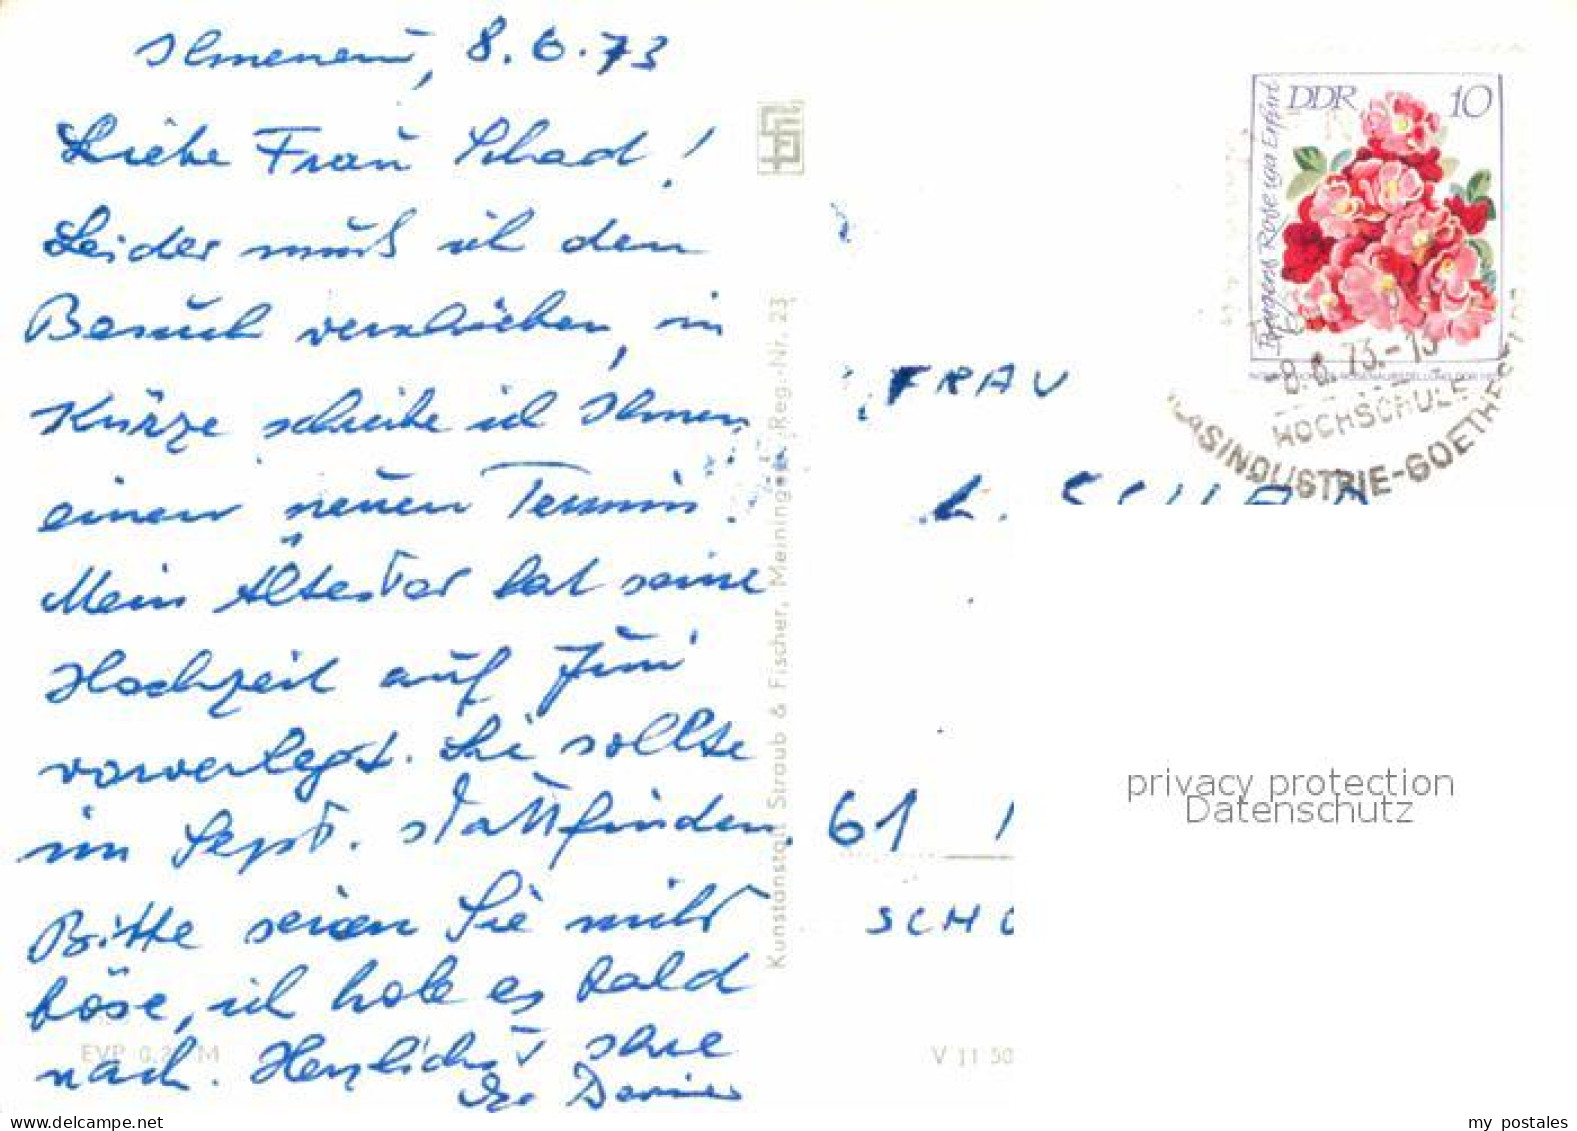 Ilmenau, 8.6.73
Liebe Frau Schad!
Leider muß ich den
Besuch verschieben, in
Kürze schreibe ich Ihnen
einen neuen Termin.
Mein Ältester hat seine
Hochzeit auf Juni
vorverlegt. Sie sollte
im Sept. stattfinden.
Bitte seien Sie nicht
böse, ich hole es bald
nach. Herzlichst Ihre
EVP 0,2 M
Kunstanstalt Straub & Fischer, Meiningen Reg.-Nr. 23
V 11 50
DDR 10
Bergers Rose iga Erfurt
-8.6.73.-13
HOCHSCHULE
GLASINDUSTRIE-GOETHE
FRAU
L. SCHAD
61
SCH
privacy protection
Datenschutz
my postales
www.delcampe.net